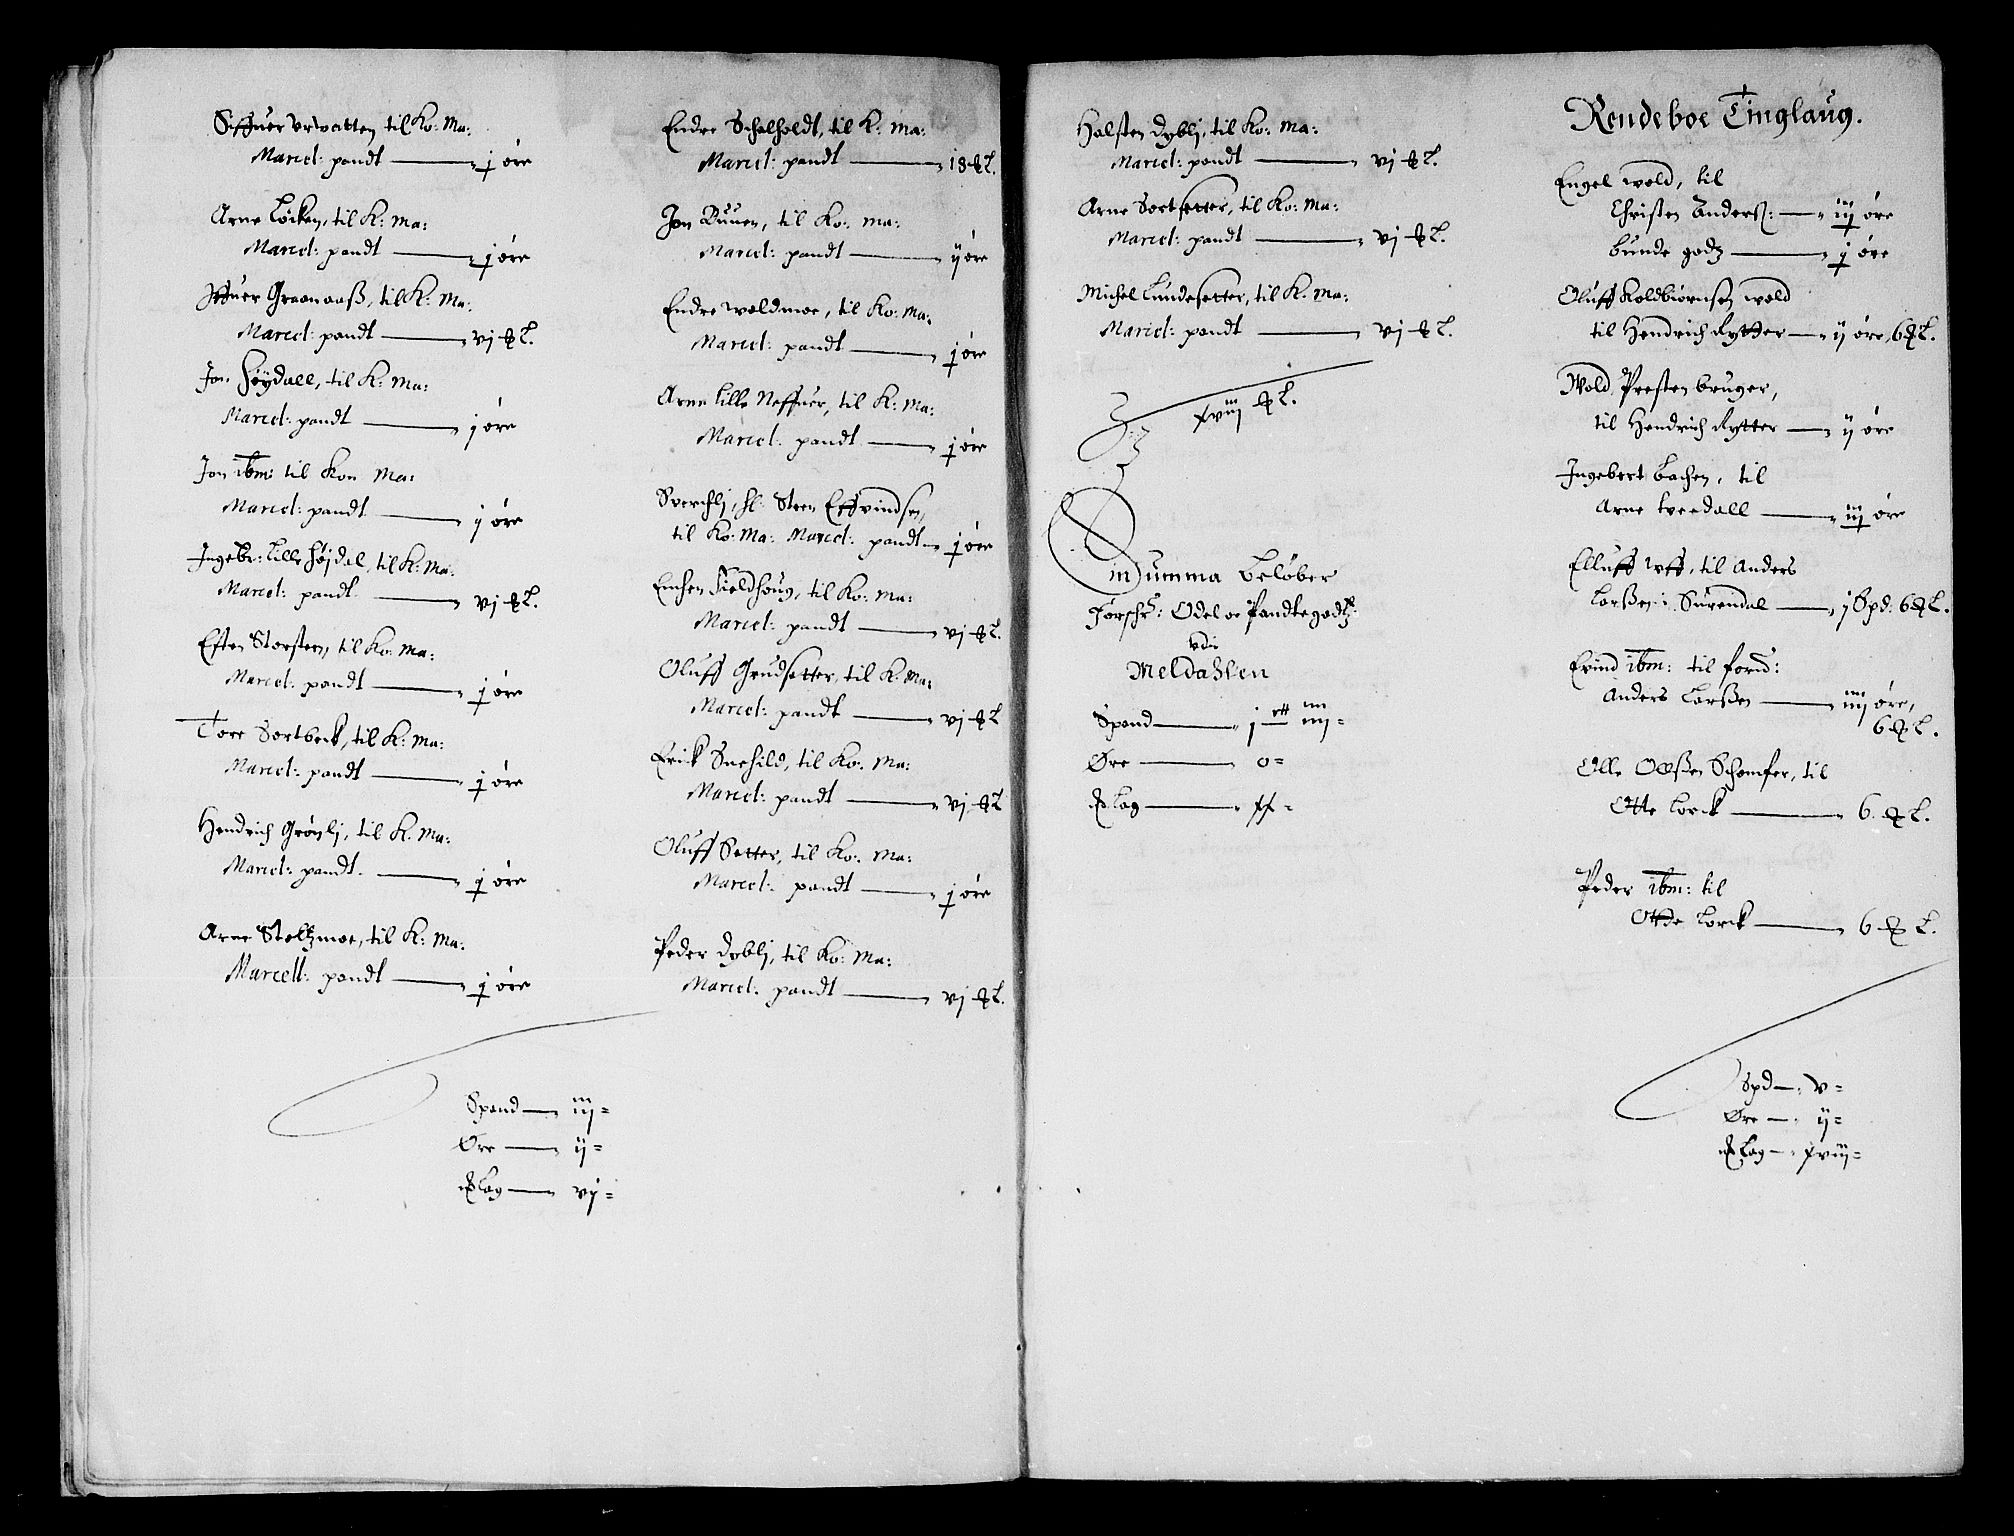 Siffuer Urwatten til Ko: Ma:
Marcel: pandt — j øre
Arne Löcken, til K: Ma:
Marcel: pandt — j øre
Iffuer Graanaaß, til K: Ma:
Marcel: pandt — vj ℔ L.
Jon Høydall, til K: Ma:
Marcel: pandt — j øre
Jon ibm: til Kon Ma:
Marcel: pandt — j øre
Ingebr: Lille Højdal, til K: Ma:
Marcel: pandt — vj ℔ L.
Esten Storsteen, til Ko: Ma:
Marcel: pandt — j øre
Tore Sortbeck, til K: Ma:
Marcel: pandt — j øre
Hendrich Grönlj, til K: Ma:
Marcel: pandt — j øre
Arne Stoltzmoe, til K: Ma:
Marcell: pandt — j øre
Endre Schalholdt, til K: Ma:
Marcel: pandt — 18 ℔ L.
Jon Buuen, til Ko: Ma:
Marcel: pandt — ij øre
Endre woldmoe, til Ko: Ma:
Marcel: pandt — j øre
Arne Lille Neffuer, til K: Ma:
Marcel: pandt — j øre
Sverchlj, hl: Steen Effvindsen,
til Ko: Ma: Marcel: pandt — j øre
Einchen Fieldhoug, til Ko: Ma:
Marcel: pandt — vj ℔ L.
Oluff Grudsetter, til K: Ma:
Marcel: pandt — vj ℔ L
Erick Snehild, til Ko: Ma:
Marcel: pandt — vj ℔ L
Oluff Setter, til Ko: Ma:
Marcel: pandt — j øre
Peder Dyblj, til Ko: Ma:
Marcel: pandt — vj ℔ L.
Spand — iij =
Øre — ij =
℔ Lag — vj =
Halsten Dyblj, til Ko: Ma:
Marcel: pandt — vj ℔ L.
Arne Sortsetter, til Ko: Ma:
Marcel: pandt — vj ℔ L.
Michel Lundesetter, til K: Ma:
Marcel: pandt — vj ℔ L.
xviij ℔ L.
Summa Beløber
Forschr: Odel oc Pandtegodtz:
udi
Meldahlen
Spand — j ett iiij =
Øre — 0 =
℔ Lag — xx =
Rendeboe Tinglaug.
Engel wold, til
Christen Anderß: — iij øre
bunde godtz — j øre
Oluff Koldbiørnsen wold
til Hendrich Rytter — ij øre, 6 ℔ L.
Wold Presten bruger,
til Hendrich Rytter — ij øre
Ingebert Bachen, til
Arne Kverdall — iij øre
Elluff Uff, til Anders
Larßen i Surendal — j Spd: 6 ℔ L.
Evind ibm: til forn:
Anders Larßen — iiij øre,
6 ℔ L.
Olle Olßen Schamfer, til
Otte Lorck — 6 ℔ L.
Peder ibm: til
Otte Lorck — 6 ℔ L.
Spd — v =
Øre — ij =
℔ Lag — xviij =